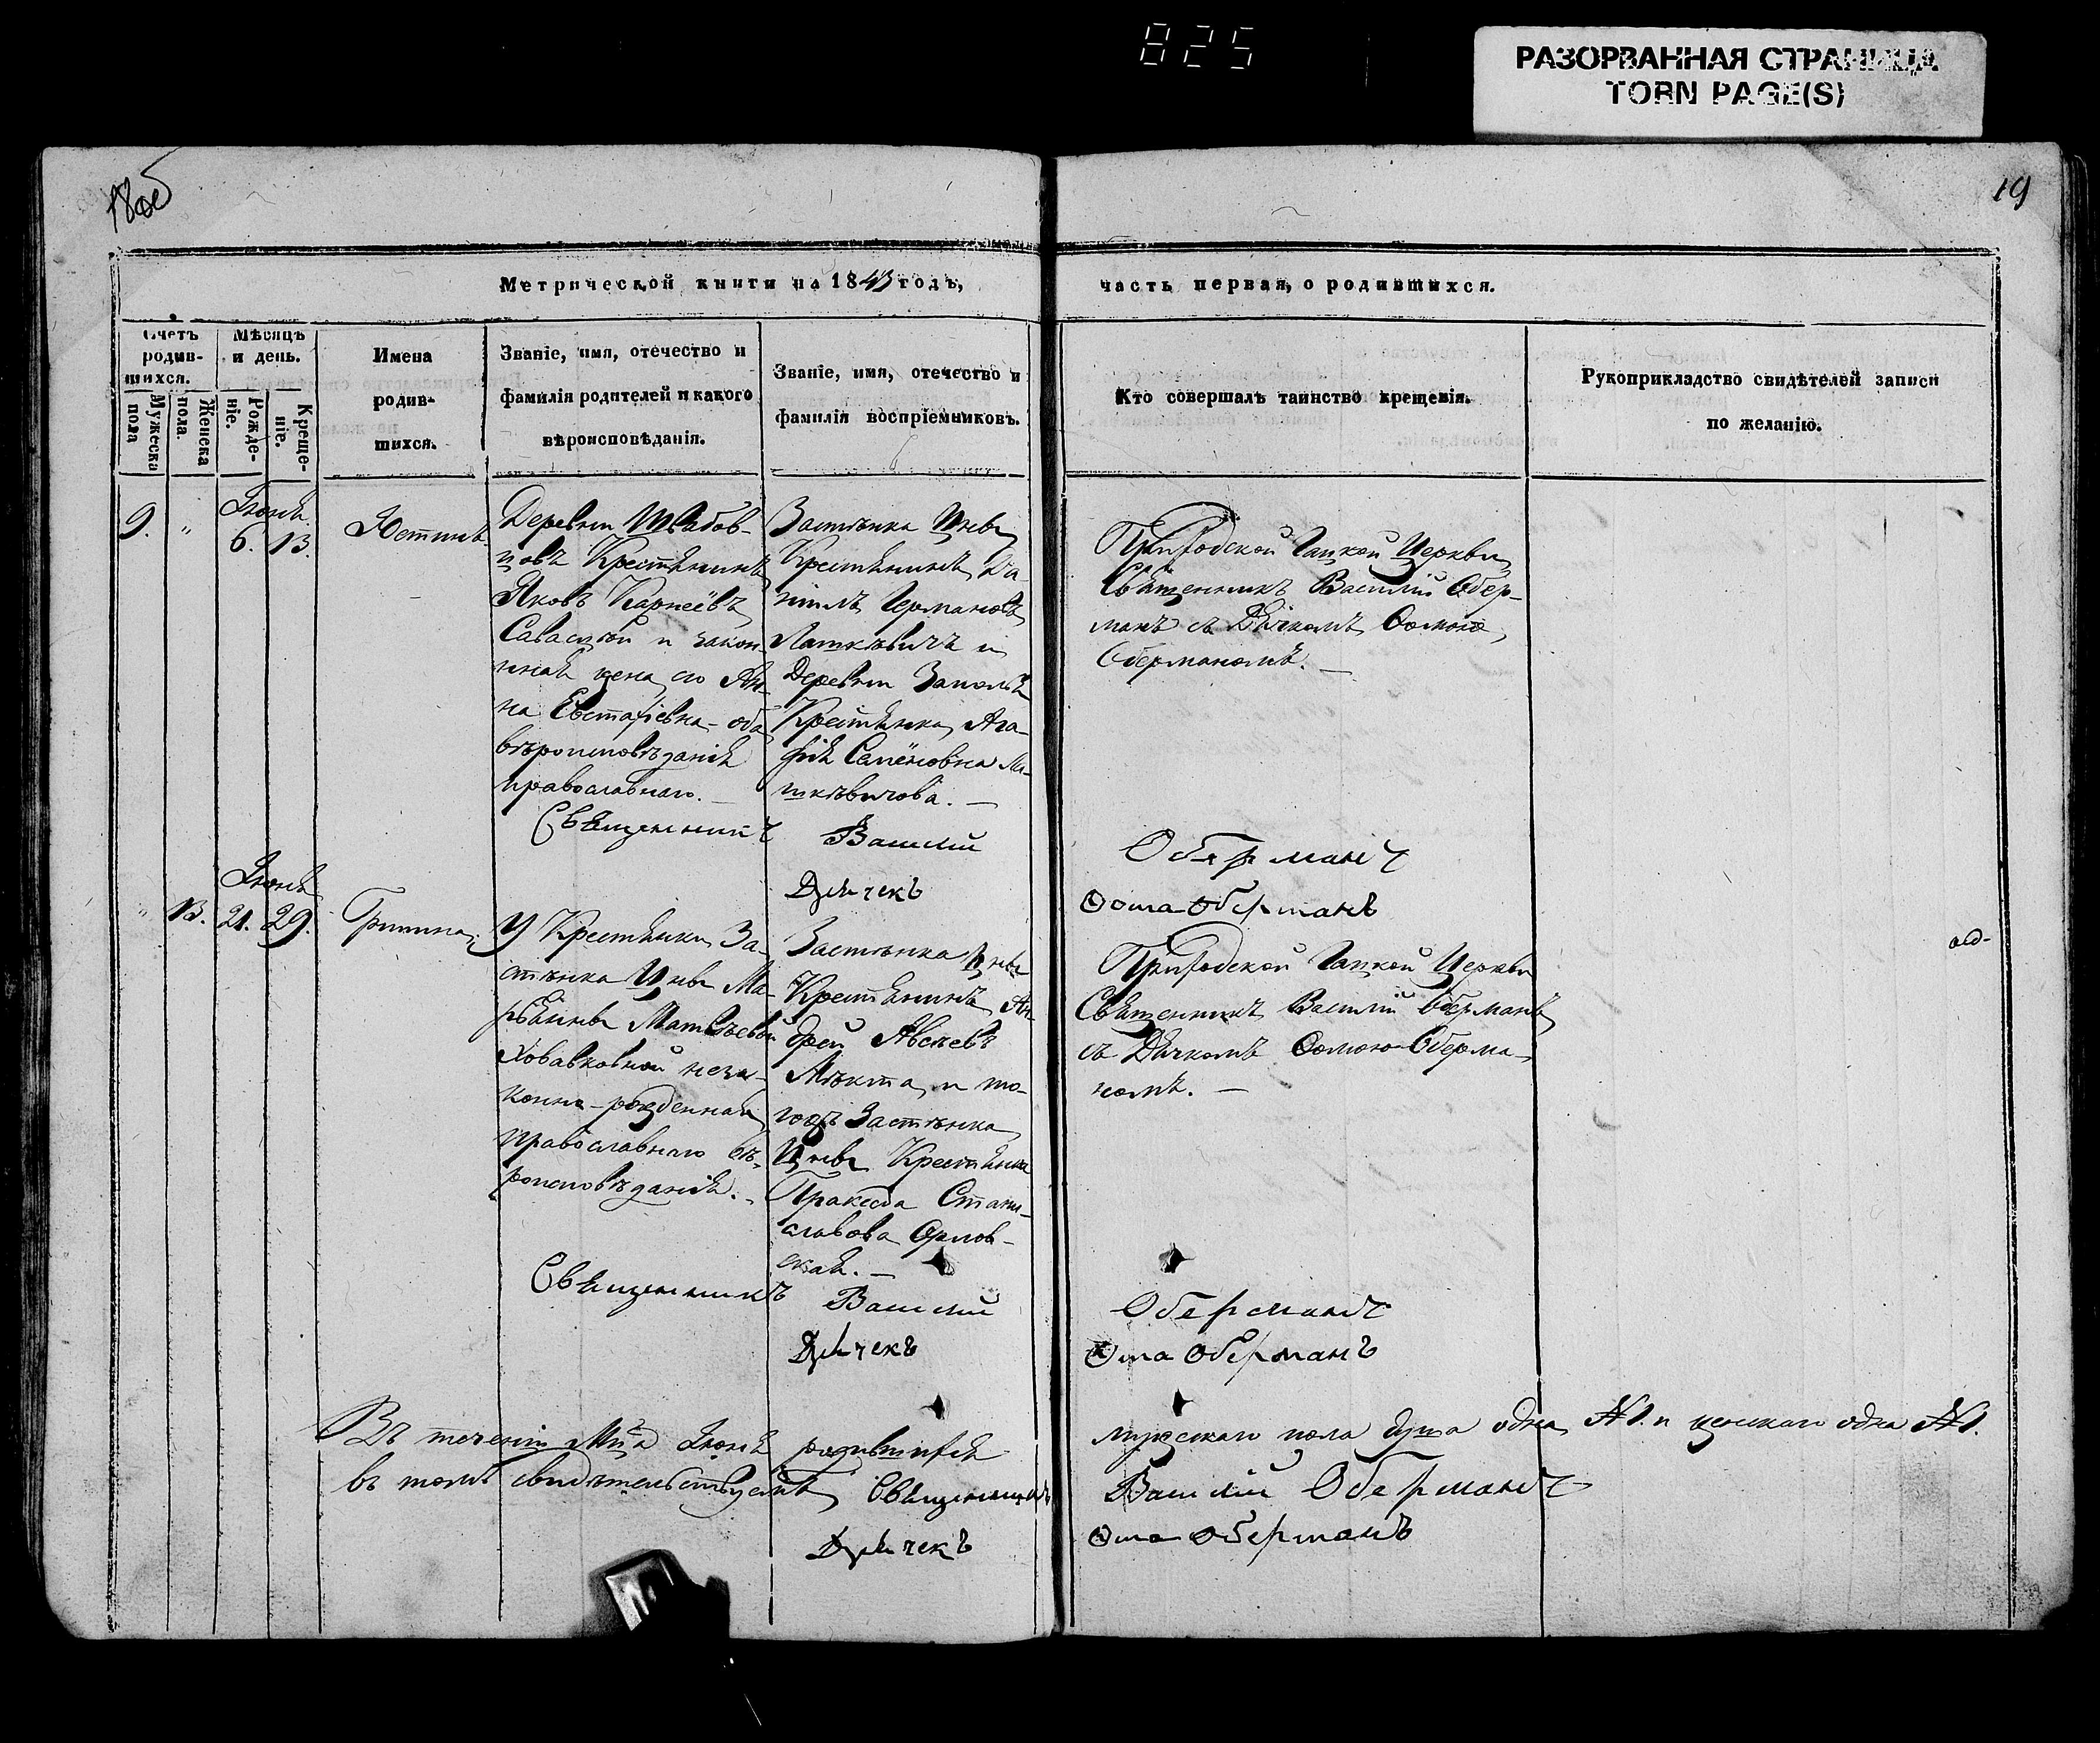 825
РАЗОРВАННАЯ СТРАНИЦА
TORN PAGE(S)
18 об
19
Метрической книги на 1843 годъ,
часть первая, о родившихся.
Счетъ родившихся.
Мужеска пола
Женска пола.
Мѣсяцъ и день.
Рожденіе.
Крещеніе.
Имена
родив-
шихся.
Званіе, имя, отечество и
фамилія родителей и какого
вѣроисповѣданія.
Званіе, имя, отечество и
фамилія воспріемниковъ.
Кто совершалъ таинство крещенія.
Рукоприкладство свидѣтелей записи
по желанію.
9. " Іюня 6. 13.
Юстинъ.
Деревни Швабов-
цовъ Крестьянинъ
Яковъ Карнеевъ
Савасцюй и закон-
ная жена его Ан-
на Евстафіевна - оба
вѣроисповѣданія
православнаго. —
Застѣнка Цнвы
Крестьянинъ Да-
ніилъ Германовъ
Лашкѣвичъ и
Деревни Заполья
Крестьянка Ага-
фія Семёновна Ма-
шкѣвичова. —
Приходской Гацкой Церкви
Священникъ Василій Обер-
манъ съ Дьячкомъ Фомою
Оберманомъ. —
Священникъ Василій Оберманъ
Дьячекъ Фома Оберманъ
" 13. Іюня 21. 29.
У Крестьянки За-
стѣнка Цнвы Ма-
рьянны Матвѣевой
Ховавковной неза-
конно-рожденная
православнаго вѣ-
роисповѣданія.
Застѣнка Цнвы
Крестьянинъ Ан-
дрей Авсеевъ
Мѣкта, и то-
гожъ Застѣнка
Цнвы Крестьянка
Пракседа Стани-
славова Орлов-
ская. —
Приходской Гацкой Церкви
Священникъ Василій Оберманъ
съ Дьячкомъ Фомою Оберма-
номъ. —
Священникъ Василій Оберманъ
Дьячекъ Фома Оберманъ
Въ теченіи Мца Іюня родившихся мужескаго пола душа одна №1. и женскаго одна №1.
въ томъ свидѣтельствуемъ Священникъ Василій Оберманъ
Дьячекъ Фома Оберманъ